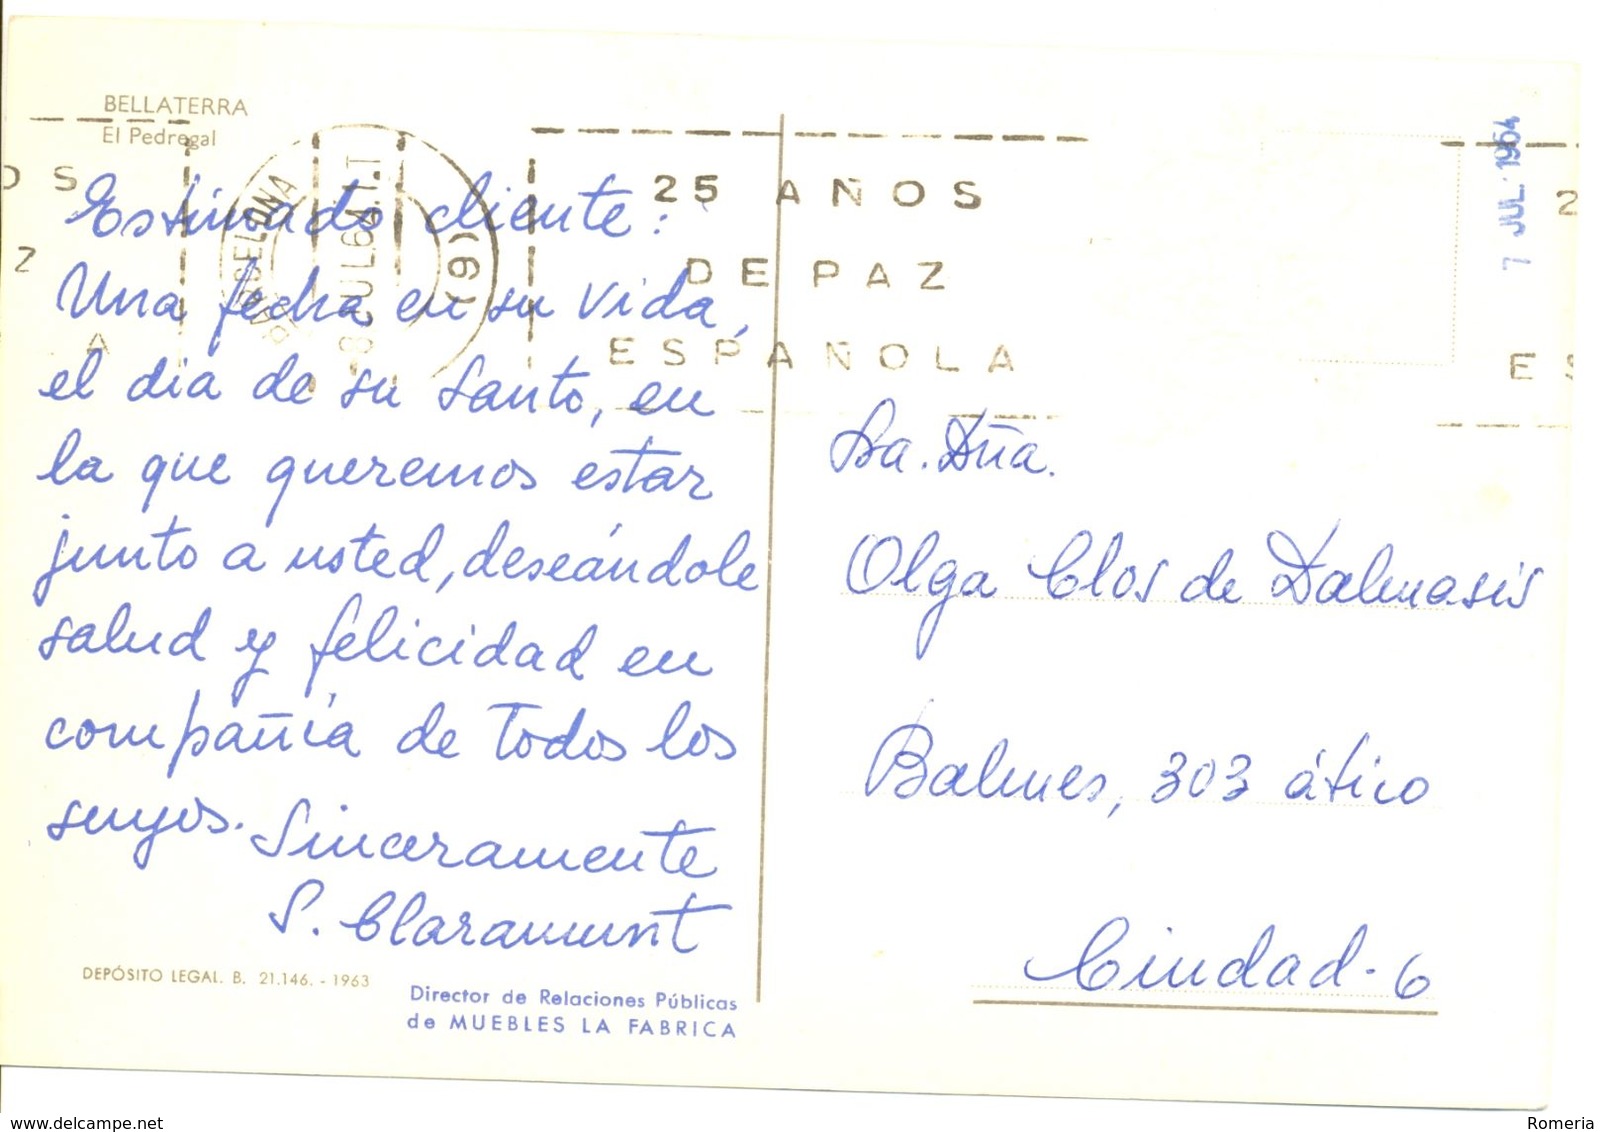 BELLATERRA
El Pedregal
OS
Z
A
BARCELONA
8 JUL 64.1.T
(9)
25 AÑOS
DE PAZ
ESPAÑOLA
7 JUL. 1964
2
ES
Estimado cliente:
Una fecha en su vida,
el dia de su santo, en
la que queremos estar
junto a usted, deseándole
salud y felicidad en
compañia de todos los
suyos. Sinceramente
S. Claramunt
DEPÓSITO LEGAL. B. 21.146. - 1963
Director de Relaciones Públicas
de MUEBLES LA FABRICA
Sa. Dña.
Olga Clos de Dalmasis
Balmes, 303 ático
Ciudad-6
www.delcampe.net
Romeria